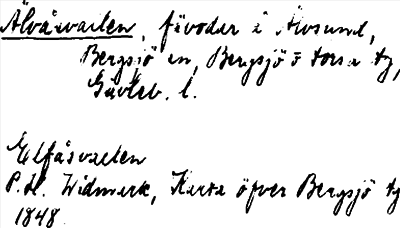 Älvåsvallen, fäbodar i Älvsund,
Bergsjö sn, Bergsjö o Forsa tg,
Gävleb. l.
Elfåsvallen
P.H. Widmark, Karta öfver Bergsjö tg
1848